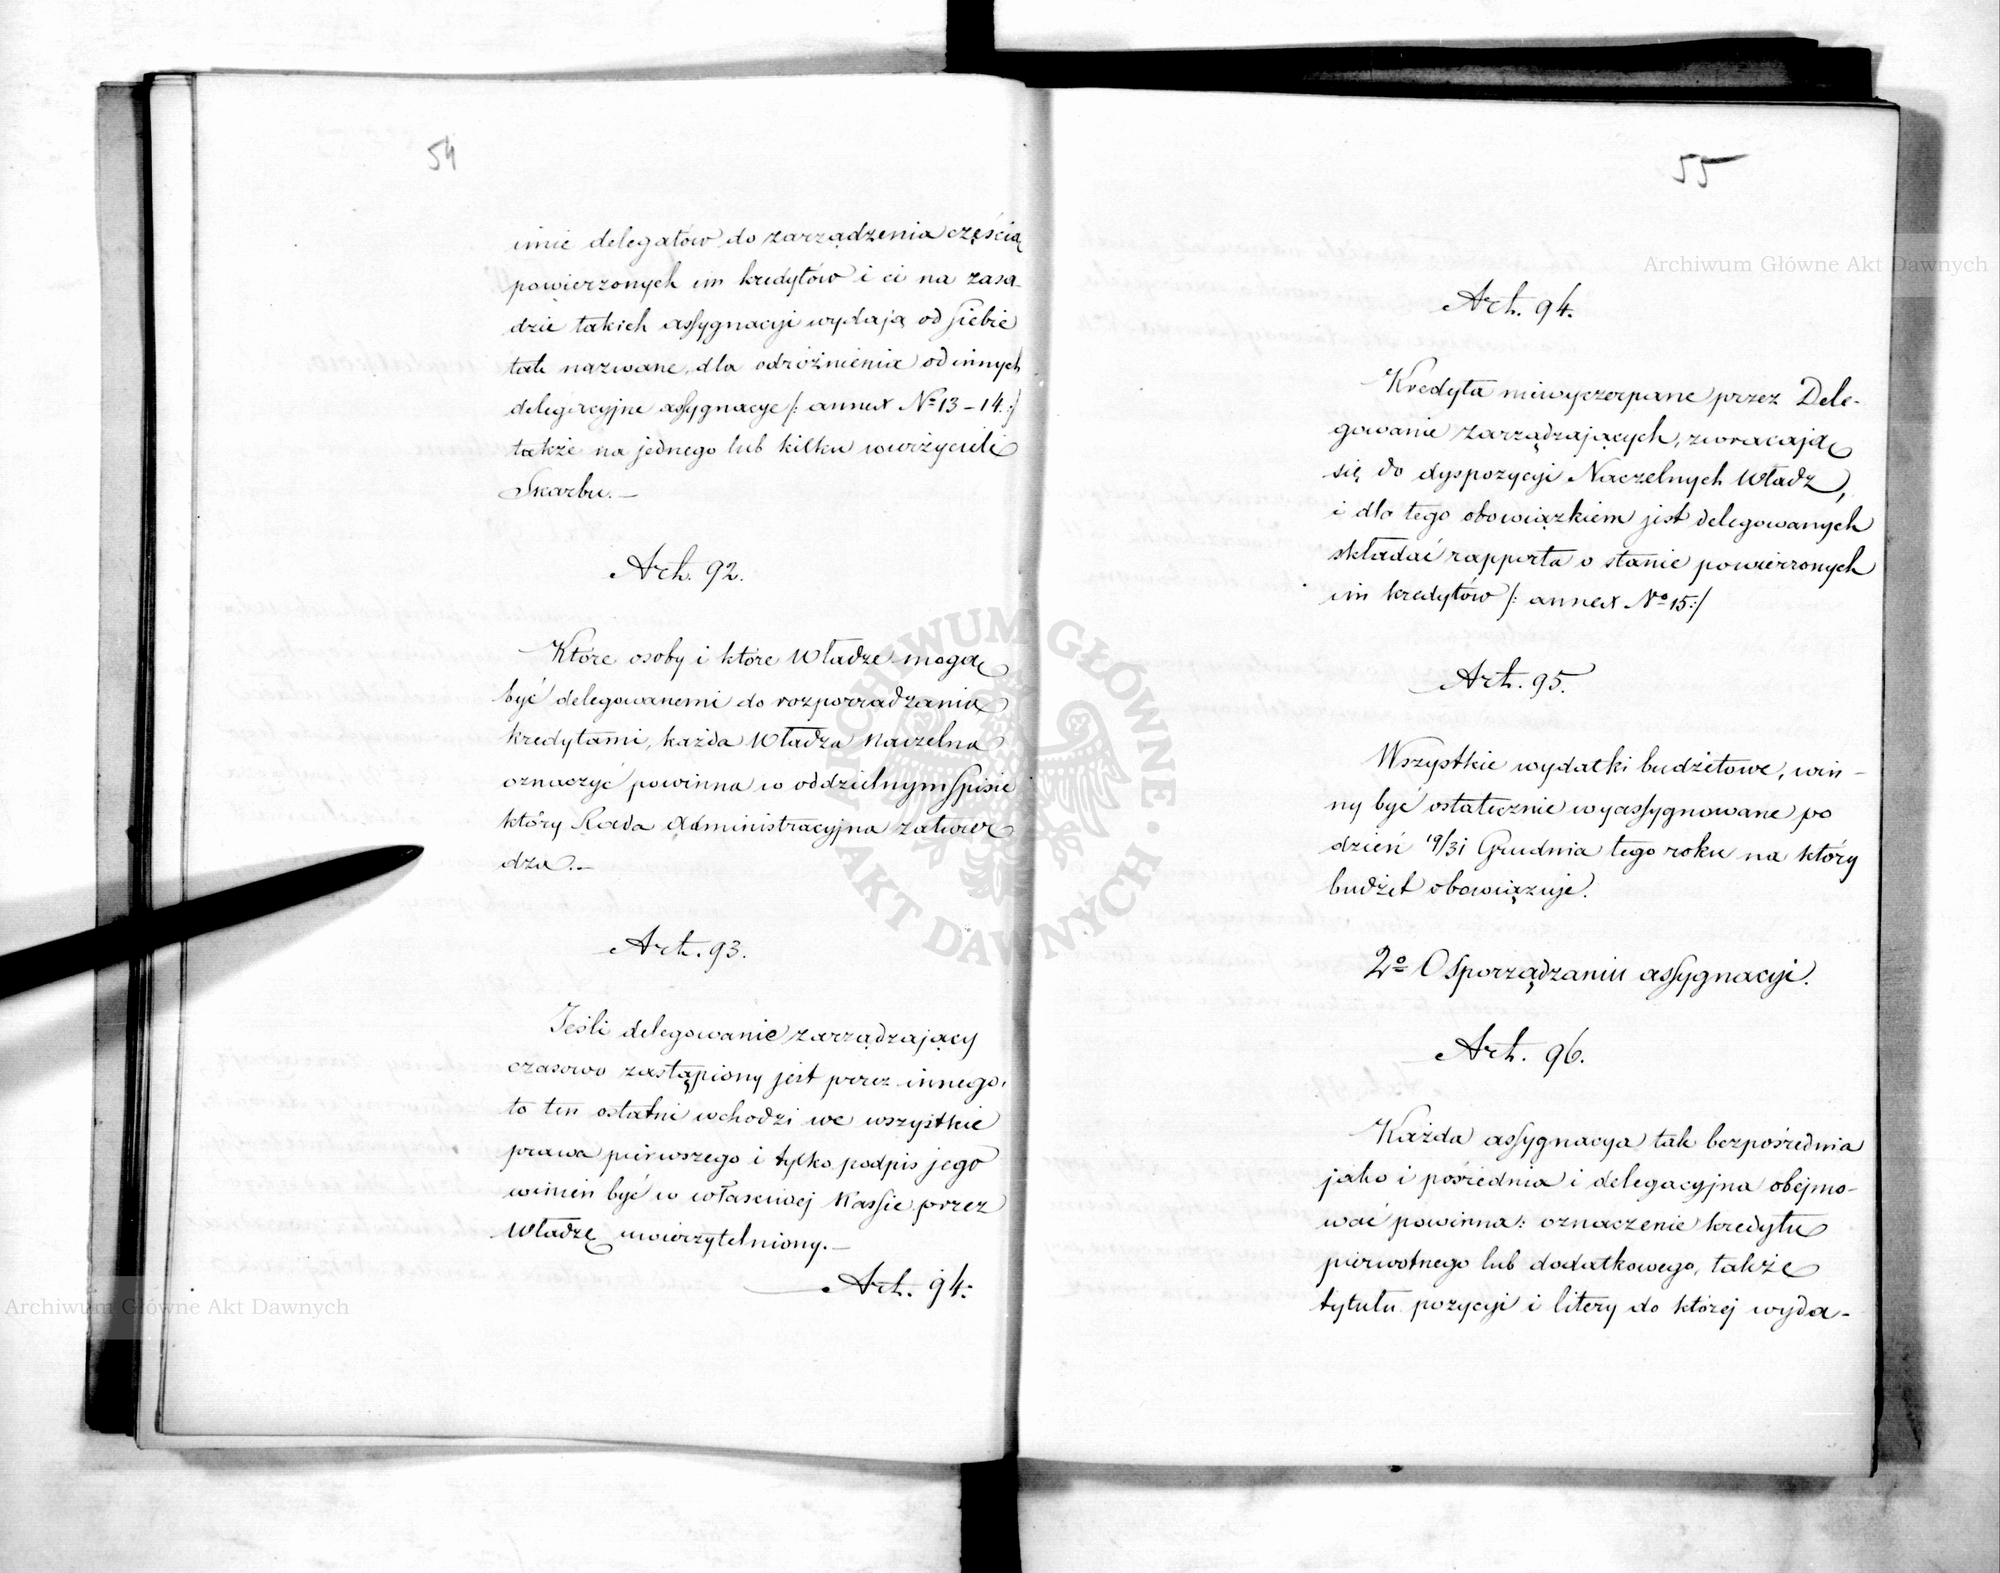 54
imie delegatów do zarządzenia częścią
powierzonych im kredytów i ci na zasa-
dzie takich assygnacyi wydają od siebie
tak nazwane, dla odróżnienia od innych
delegacyjne assygnacye /: annex Nº 13 – 14. :/
także na jednego lub kilku wierzycieli
Skarbu. —
Art. 92.
Które osoby i które Władze mogą
być delegowanemi do rozporządzania
kredytami, każda Władza Naczelna
oznaczyć powinna w oddzielnym spisie
który Rada Administracyjna zatwier
dza. —
Art. 93.
Jeśli delegowanie zarządzający
czasowo zastąpiony jest przez innego,
to ten ostatni wchodzi we wszystkie
prawa pierwszego i tylko podpis jego
winien być w właściwej Kassie przez
Władzę uwierzytelniony. —
Art. 94.
55
Art. 94.
Kredyta niewyczerpane przez Dele-
gowanie zarządzających, zwracają
się do dyspozycyi Naczelnych Władz,
i dla tego obowiązkiem jest delegowanych
składać rapporta o stanie powierzonych
im kredytów /: annex Nº 15 :/
Art. 95.
Wszystkie wydatki budżetowe, win –
ny być ostatecznie wyassygnowane po
dzień 19/31 Grudnia tego roku na który
budżet obowiązuje.
2º O sporządzaniu assygnacyi.
Art. 96.
Każda assygnacya tak bezpośrednia
jako i pośrednia i delegacyjna obejmo-
wać powinna: oznaczenie kredytu
pierwotnego lub dodatkowego, także
tytułu pozycyi i litery do której wyda-
Archiwum Główne Akt Dawnych
Archiwum Główne Akt Dawnych
ARCHIWUM GŁÓWNE AKT DAWNYCH